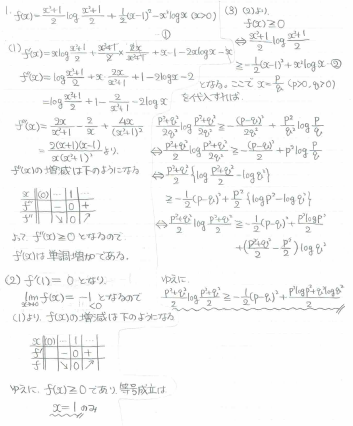 1. f(x)= (x²+1)/2 log (x²+1)/2 + 1/2 (x-1)² - x² log x (x>0)
①
(1) f'(x)= x log (x²+1)/2 + (x²+1)/2 × 2x/(x²+1) + x-1-2x log x - x
f''(x)= log (x²+1)/2 + x・2x/(x²+1) + 1-2 log x - 2
= log (x²+1)/2 + 1 - 2/(x²+1) - 2 log x
f'''(x)= 2x/(x²+1) - 2/x + 4x/(x²+1)²
= 2(x+1)(x-1)/x(x²+1)² より、
f''(x)の増減は下のようになる
x (0) … 1 …
f''' - 0 +
f'' ↘ 0 ↗
よって f''(x)≧0 となるので
f'(x)は単調増加である。
(2) f'(1)=0 となり、
lim x→+0 f'(x) = -1 <0 となるので
(1)より、f(x)の増減は下のようになる
x (0) … 1 …
f' - 0 +
f ↘ 0 ↗
ゆえに、f(x)≧0であり、等号成立は
x=1 のみ
(3) (2)より、
f(x)≧0
⇔ (x²+1)/2 log (x²+1)/2
≧ -1/2 (x-1)² + x² log x -②
となる。ここで x= p/q (p>0, q>0)
を代入すれば、
(p²+q²)/2q² log (p²+q²)/2q² ≧ -(p-q)²/2q² + p²/q² log p/q
⇔ (p²+q²)/2 log (p²+q²)/2q² ≧ -(p-q)²/2 + p² log p/q
⇔ (p²+q²)/2 {log (p²+q²)/2 - log q²}
≧ -1/2 (p-q)² + p²/2 {log p² - log q²}
⇔ (p²+q²)/2 log (p²+q²)/2 ≧ -1/2 (p-q)² + p² log p²/2
+ ((p²+q²)/2 - p²/2) log q²
ゆえに
(p²+q²)/2 log (p²+q²)/2 ≧ -1/2 (p-q)² + (p² log p² + q² log q²)/2